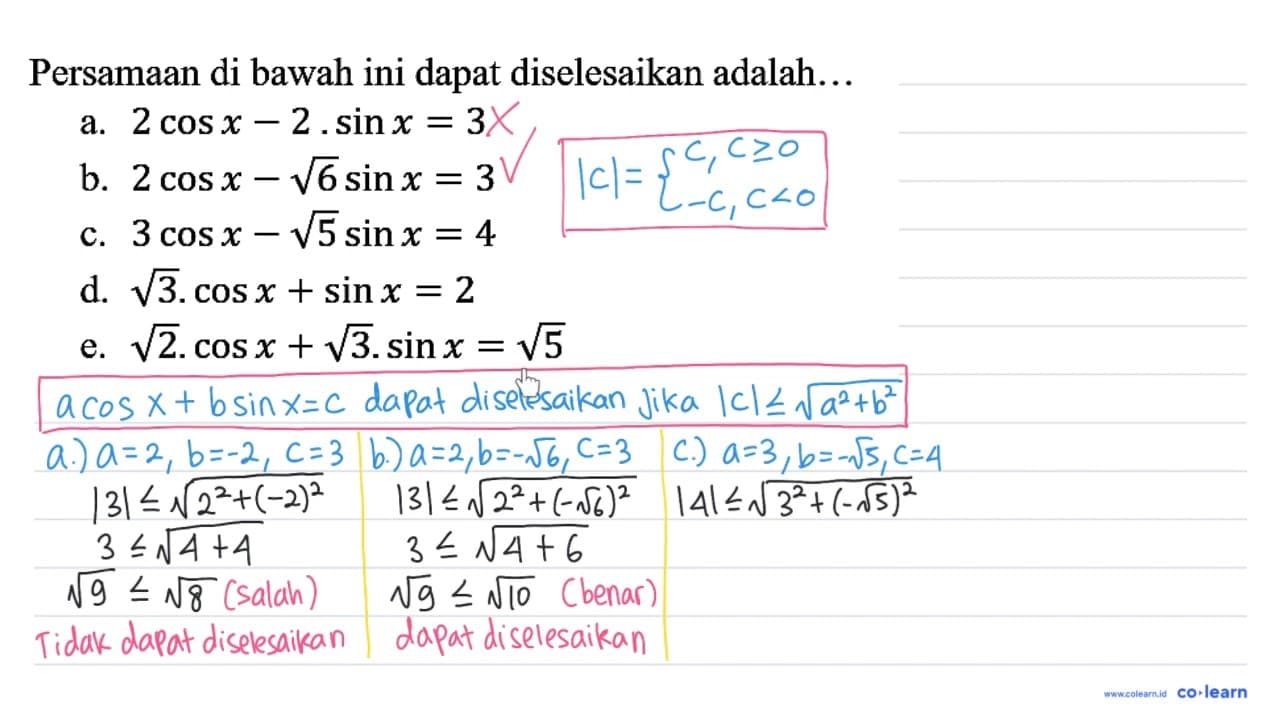 Persamaan di bawah ini dapat diselesaikan adalah...
a. 2 cos x − 2 . sin x = 3 ✗
b. 2 cos x − √6 sin x = 3 ✓
c. 3 cos x − √5 sin x = 4
d. √3. cos x + sin x = 2
e. √2. cos x + √3. sin x = √5
|c| = { c, c ≥ 0
-c, c < 0
a cos x + b sin x = c dapat diselesaikan jika |c| ≤ √(a²+b²)
a.) a = 2, b = -2, c = 3
|3| ≤ √(2²+(-2)²)
3 ≤ √(4+4)
√9 ≤ √8 (salah)
Tidak dapat diselesaikan
b.) a = 2, b = -√6, c = 3
|3| ≤ √(2²+(-√6)²)
3 ≤ √(4+6)
√9 ≤ √10 (benar)
dapat diselesaikan
c.) a = 3, b = -√5, c = 4
|4| ≤ √(3²+(-√5)²)
www.colearn.id co·learn